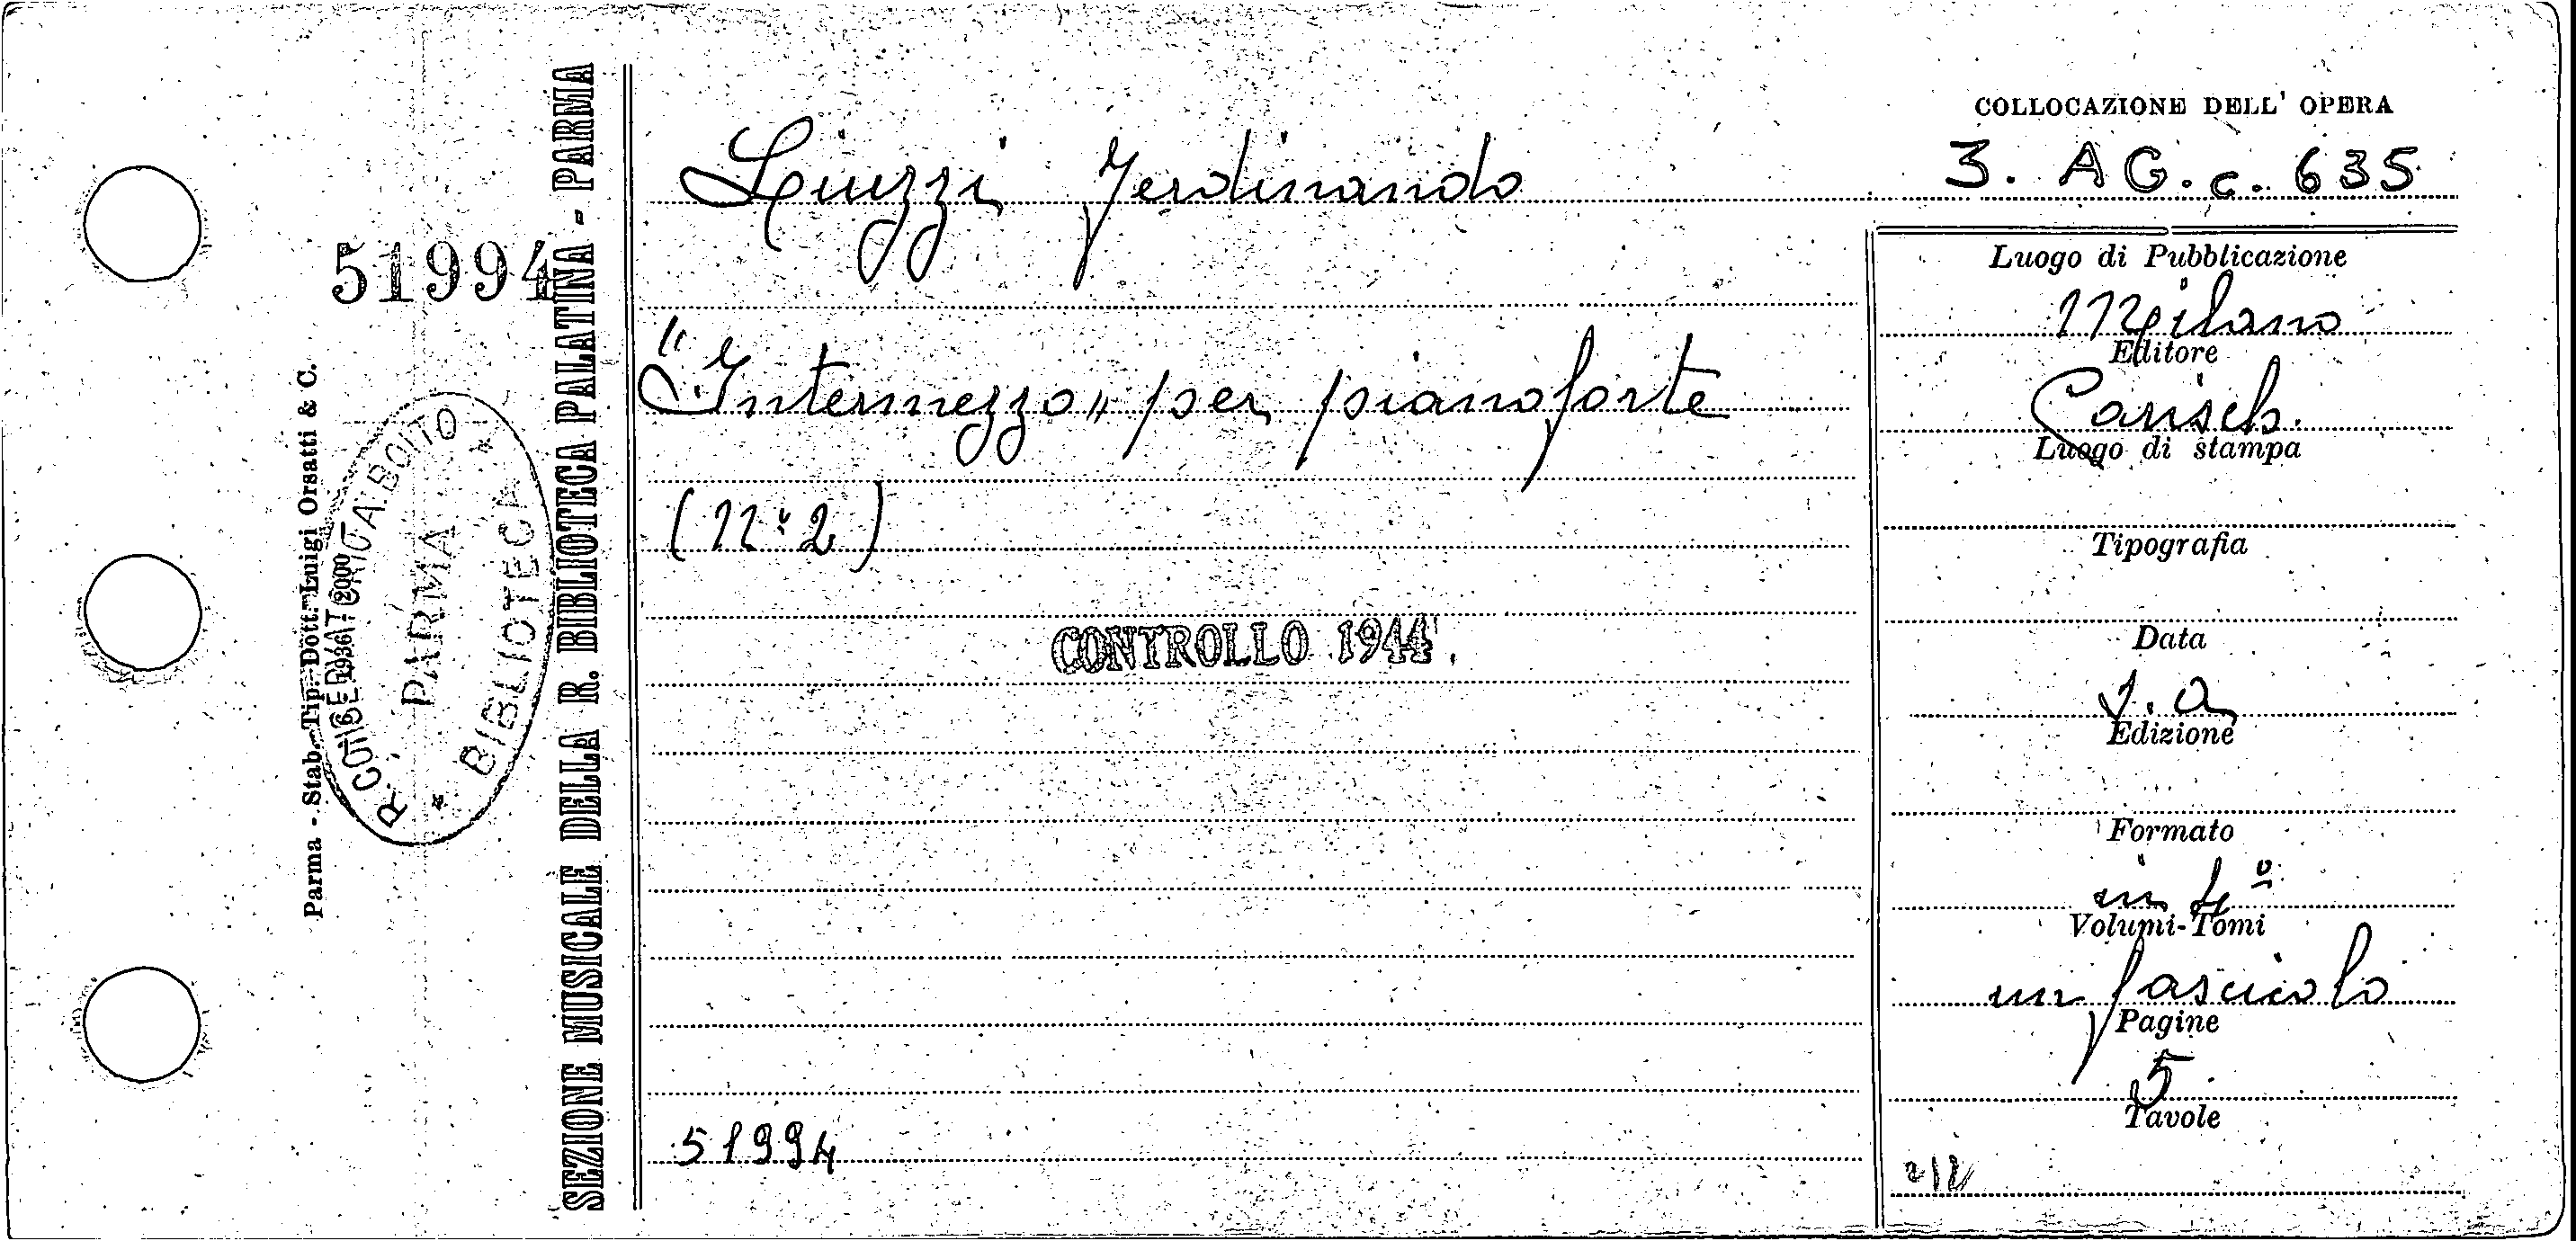 COLLOCAZIONE DELL' OPERA
Liuzzi Ferdinando
3. AG. c. 635
"Intermezzo" per pianoforte
(N° 2)
CONTROLLO 1944
51994
Luogo di Pubblicazione
Milano
Editore
Carisch.
Luogo di stampa
Tipografia
Data
s. a
Edizione
Formato
in 4º
Volumi-Tomi
un fascicolo
Pagine
5
Tavole
51994
SEZIONE MUSICALE DELLA R. BIBLIOTECA PALATINA - PARMA
Parma - Stab. Tip. Dott. Luigi Orsatti & C.
R. ARRIGO BOITO
PARMA
* BIBLIOTECA *